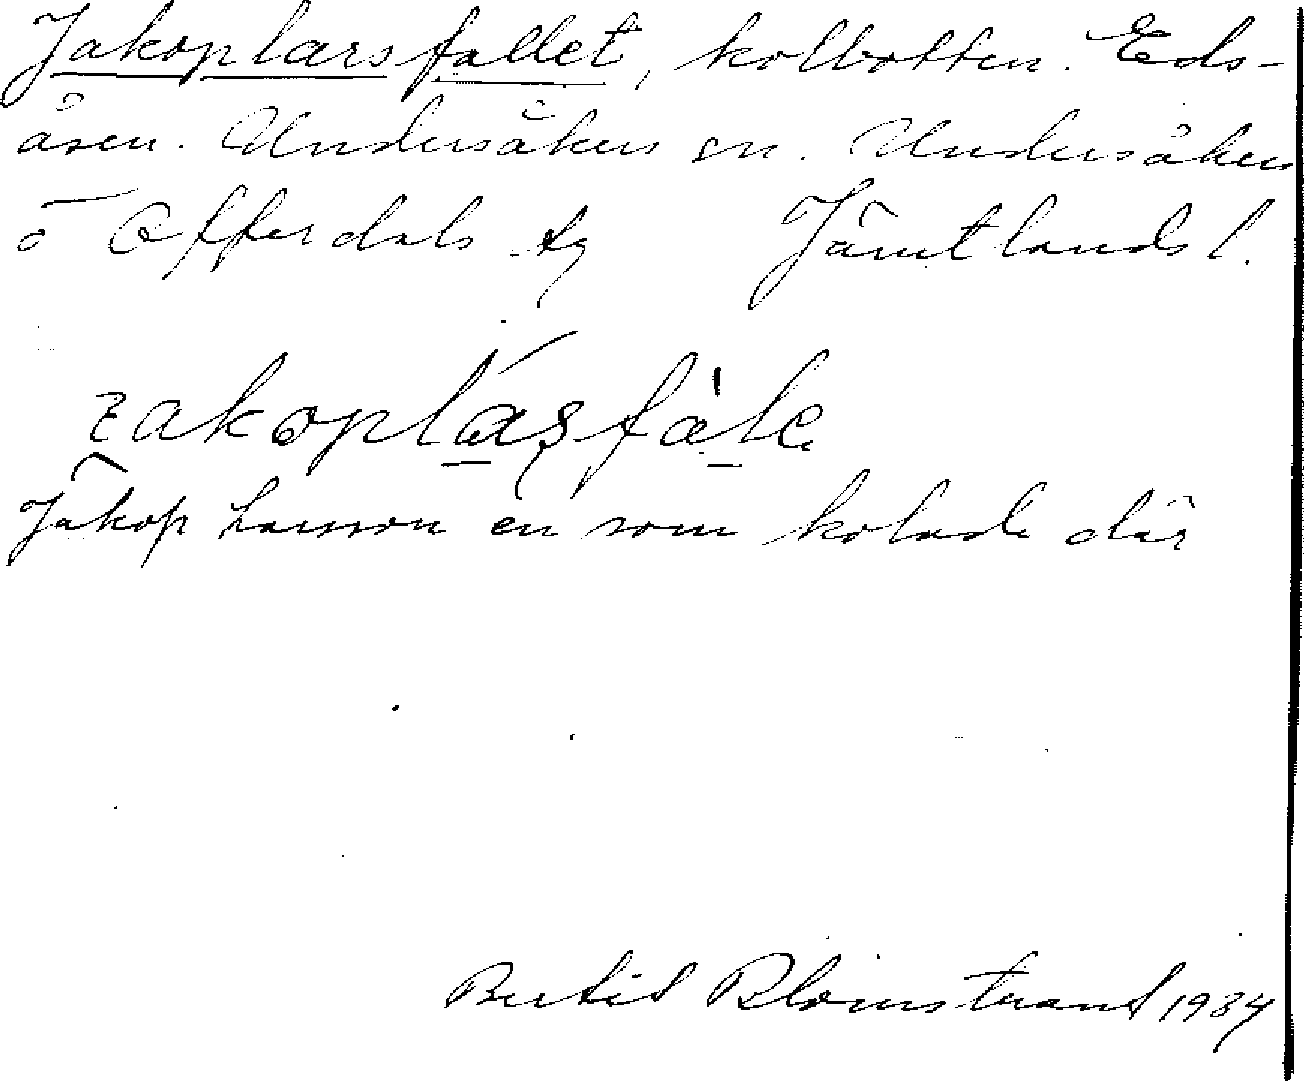 Jakoplarsfallet, kolbotten. Eds-
åsen. Undersåkers sn. Undersåkers
o Offerdals tg Jämtlands l.
zakoplásfále
Jakop Larsson en som kolade där
Bertil Blomstrand 1934